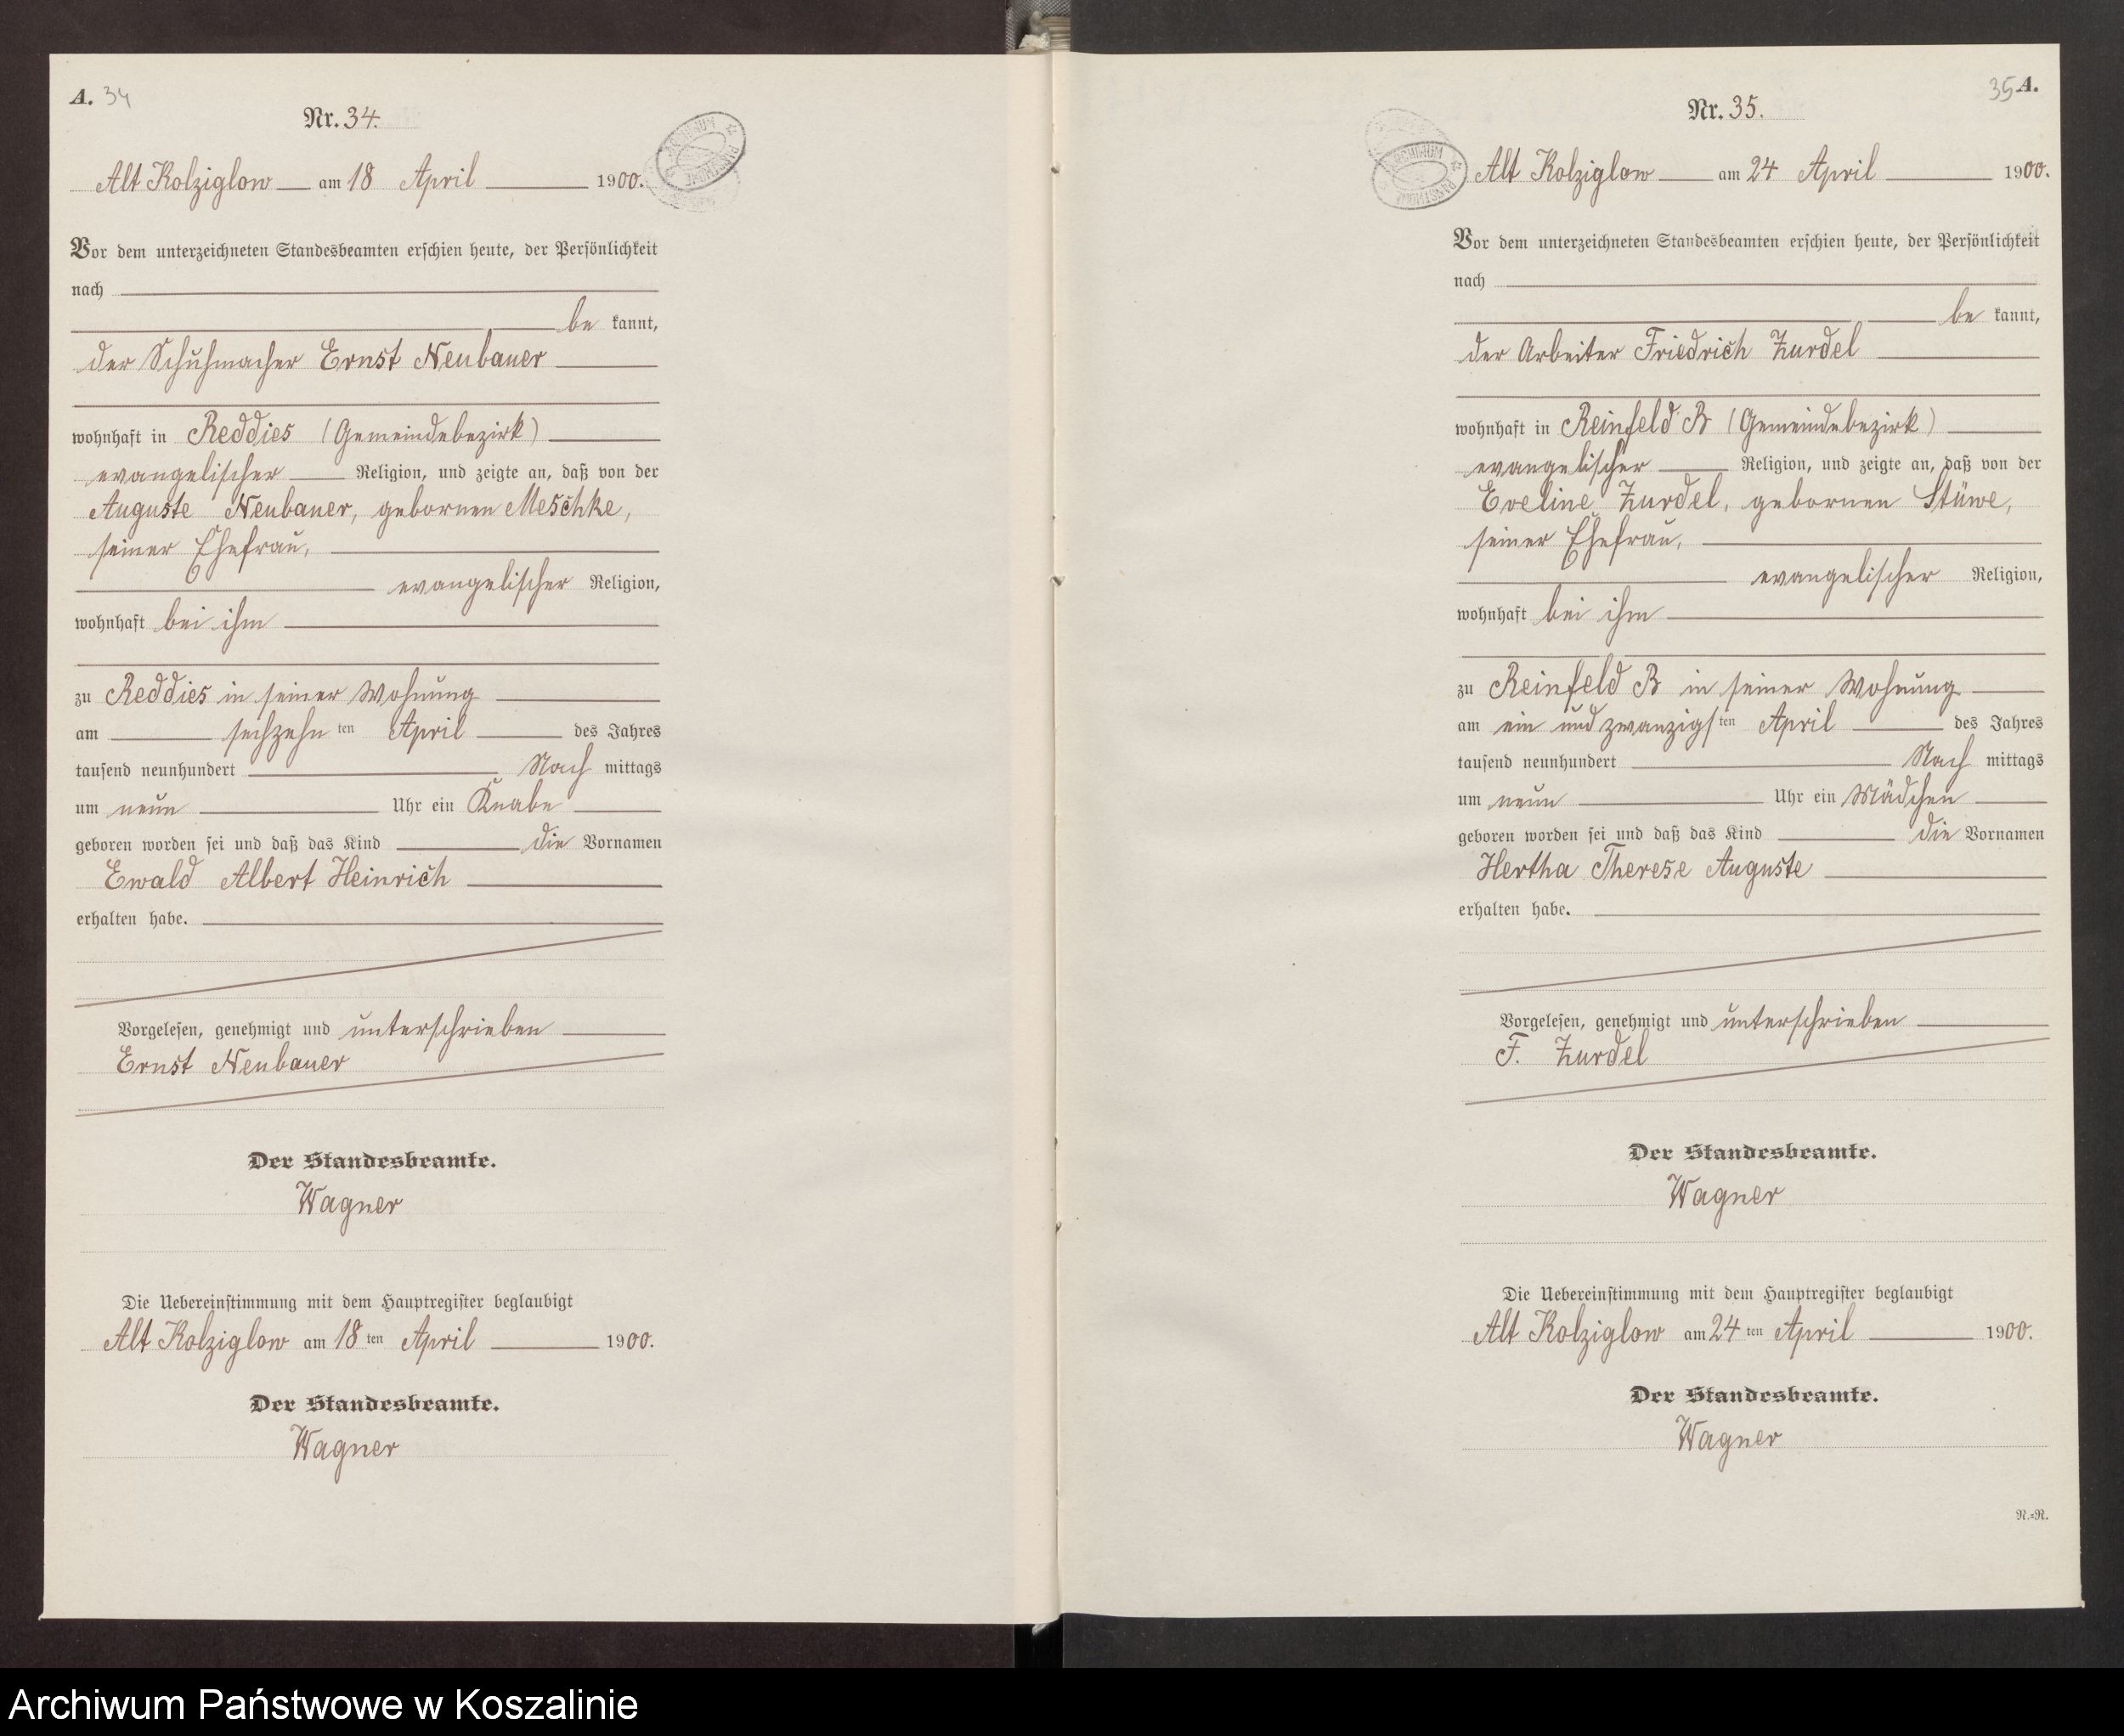 A. 34
Nr. 34.
Alt Kolziglow am 18 April 1900.
Vor dem unterzeichneten Standesbeamten erschien heute, der Persönlichkeit
nach
be kannt,
der Schuhmacher Ernst Neubauer
wohnhaft in Reddies (Gemeindebezirk)
evangelischer Religion, und zeigte an, daß von der
Auguste Neubauer, gebornen Meschke,
seiner Ehefrau,
evangelischer Religion,
wohnhaft bei ihm
zu Reddies in seiner Wohnung
am sechzehn ten April des Jahres
tausend neunhundert Nach mittags
um neun Uhr ein Knabe
geboren worden sei und daß das Kind die Vornamen
Ewald Albert Heinrich
erhalten habe.
Vorgelesen, genehmigt und unterschrieben
Ernst Neubauer
Der Standesbeamte.
Wagner
Die Uebereinstimmung mit dem Hauptregister beglaubigt
Alt Kolziglow am 18 ten April 1900.
Der Standesbeamte.
Wagner
35 A.
Nr. 35.
ARCHIWUM
Alt Kolziglow am 24 April 1900.
Vor dem unterzeichneten Standesbeamten erschien heute, der Persönlichkeit
nach
be kannt,
der Arbeiter Friedrich Zurdel
wohnhaft in Reinfeld B (Gemeindebezirk)
evangelischer Religion, und zeigte an, daß von der
Eveline Zurdel, gebornen Stüwe,
seiner Ehefrau,
evangelischer Religion,
wohnhaft bei ihm
zu Reinfeld B in seiner Wohnung
am ein und zwanzigs ten April des Jahres
tausend neunhundert Nach mittags
um neun Uhr ein Mädchen
geboren worden sei und daß das Kind die Vornamen
Hertha Therese Auguste
erhalten habe.
Vorgelesen, genehmigt und unterschrieben
F. Zurdel
Der Standesbeamte.
Wagner
Die Uebereinstimmung mit dem Hauptregister beglaubigt
Alt Kolziglow am 24 ten April 1900.
Der Standesbeamte.
Wagner
N.=N.
Archiwum Państwowe w Koszalinie